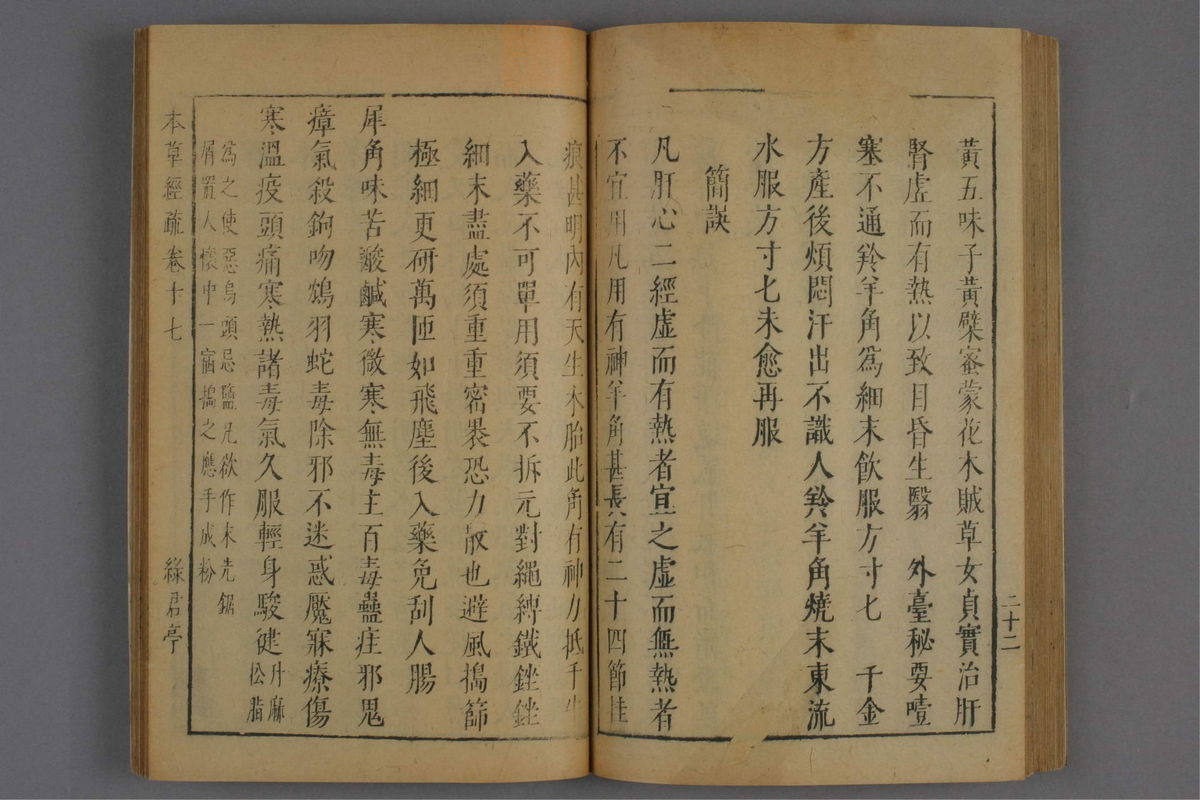 二十二
黃五味子黃檗蜜蒙花木賊草女貞實治肝
腎虛而有熱以致目昏生翳　外臺秘要噎
塞不通羚羊角爲細末飲服方寸匕　千金
方產後煩悶汗出不識人羚羊角燒末東流
水服方寸匕未愈再服
簡誤
凡肝心二經虛而有熱者宜之虛而無熱者
不宜用凡用有神羊角甚長有二十四節挂
痕甚明內有天生木胎此角有神力抵千牛
入藥不可單用須要不拆元對繩縛鐵銼銼
細末盡處須重重密裹恐力散也避風搗篩
極細更研萬匝如飛塵後入藥免刮人腸
犀角味苦酸鹹寒微寒無毒主百毒蠱疰邪鬼
瘴氣殺鉤吻鴆羽蛇毒除邪不迷惑魘寐療傷
寒溫疫頭痛寒熱諸毒氣久服輕身駿健升麻
松脂
爲之使惡烏頭忌鹽凡欲作末先鋸
屑置人懷中一宿搗之應手成粉
本草經疏　卷十七　綠君亭